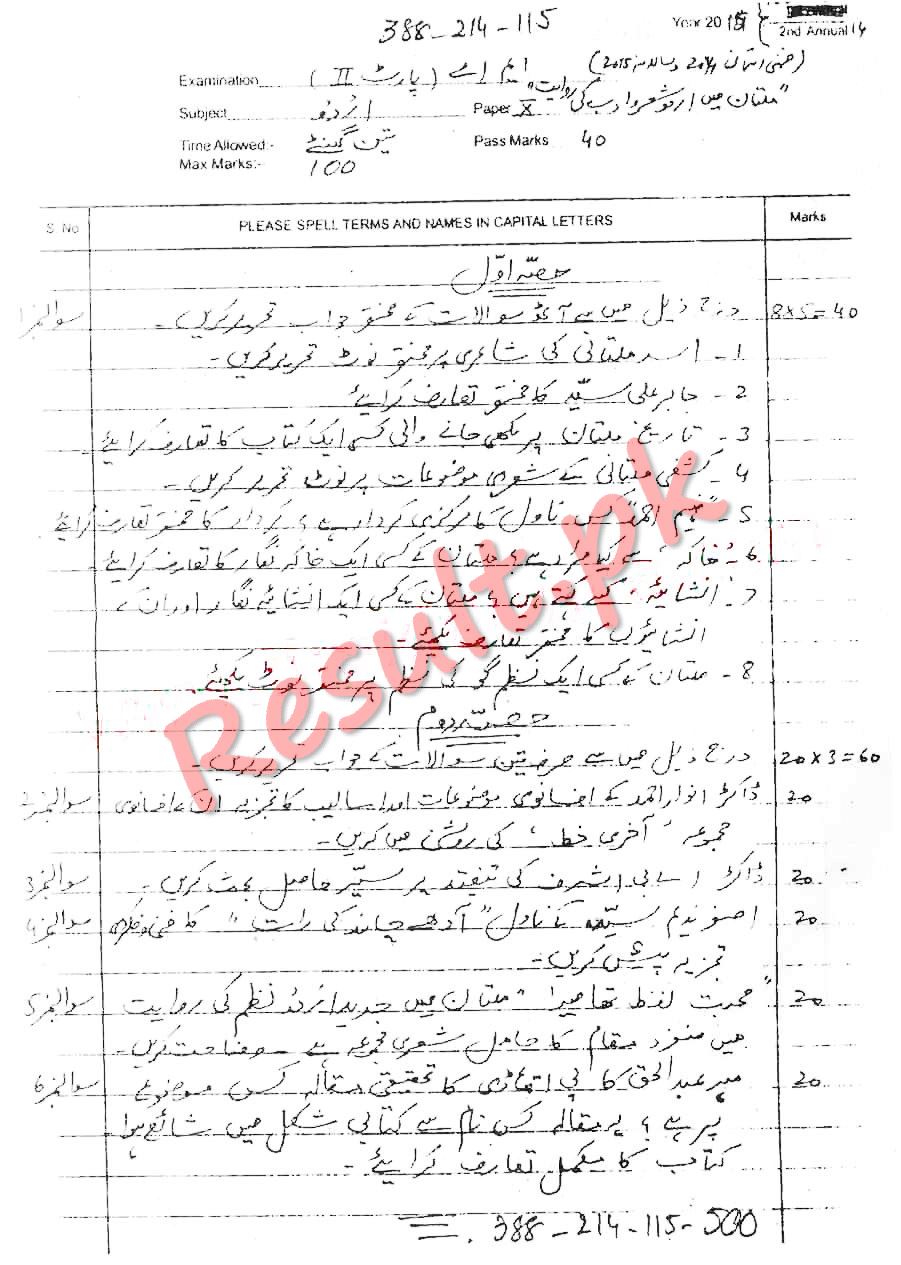 388-214-115
Year 2015
2nd Annual 14
(ضمنی امتحان 2014ء سالانہ 2015)
Examination ایم اے (پارٹ II)
"ملتان میں اردو شعر و ادب کی روایت"
Subject اردو Paper X
Time Allowed:- تین گھنٹے Pass Marks 40
Max Marks:- 100
S. No PLEASE SPELL TERMS AND NAMES IN CAPITAL LETTERS Marks
حصہ اوّل
سوال نمبر1 درج ذیل میں سے آٹھ سوالات کے مختصر جواب تحریر کریں۔ 8x5=40
1۔ اسد ملتانی کی شاعری پر مختصر نوٹ تحریر کریں۔
2۔ جابر علی سیّد کا مختصر تعارف کرایئے
3۔ تاریخ ملتان پر لکھی جانے والی کسی ایک کتاب کا تعارف کرایئے
4۔ کشفی ملتانی کے شعری موضوعات پر نوٹ تحریر کریں۔
5۔ "فہیم احمد" کس ناول کا مرکزی کردار ہے؟ کردار کا مختصر تعارف کرایئے
6۔ 'خاکہ' سے کیا مراد ہے؟ ملتان کے کسی ایک خاکہ نگار کا تعارف کرایئے
7۔ 'انشائیہ' کسے کہتے ہیں؟ ملتان کے کسی ایک انشائیہ نگار اور ان کے
انشائیوں کا مختصر تعارف لکھئے۔
8۔ ملتان کے کسی ایک نظم گو کی نظم پر مختصر نوٹ لکھئے۔
حصہ دوم
درج ذیل میں سے صرف تین سوالات کے جواب تحریر کریں۔ 20x3=60
سوال نمبر2 ڈاکٹر انوار احمد کے افسانوی موضوعات اور اسالیب کا تجزیہ ان کے افسانوی 20
مجموعہ 'آخری خط' کی روشنی میں کریں۔
سوال نمبر3 ڈاکٹر اے بی اشرف کی تنقید پر سیر حاصل بحث کریں۔ 20
سوال نمبر4 اصغر ندیم سیّد کے ناول "آدھے چاند کی رات" کا فنی و فکری 20
تجزیہ پیش کریں۔
سوال نمبر5 "محبت لفظ تھا میرا" ملتان میں جدید اردو نظم کی روایت 20
میں منفرد مقام کا حامل شعری مجموعہ ہے۔ وضاحت کریں۔
سوال نمبر6 مہر عبدالحق کا پی ایچ ڈی کا تحقیقی مقالہ کس موضوع 20
پر ہے؟ یہ مقالہ کس نام سے کتابی شکل میں شائع ہوا
کتاب کا مکمل تعارف کرایئے۔
388-214-115-500
Result.pk